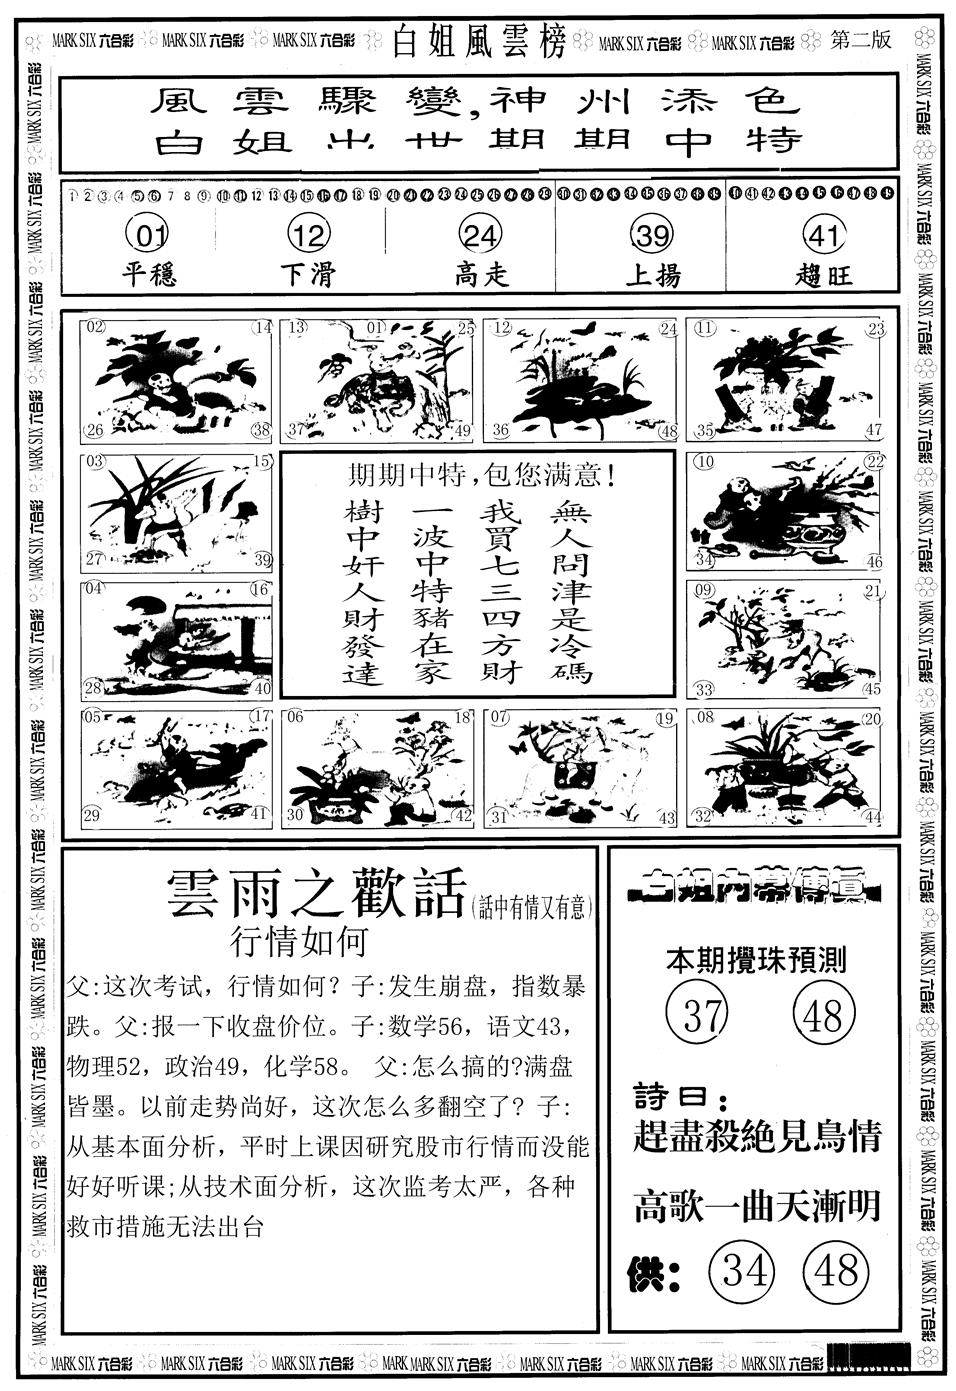 MARK SIX 六合彩 MARK SIX 六合彩 MARK SIX 六合彩 白姐風雲榜 MARK SIX 六合彩 MARK SIX 六合彩 第二版
風雲驟變,神州添色
白姐出世期期中特
1 2 3 4 5 6 7 8 9 10 11 12 13 14 15 16 17 18 19 20 21 22 23 24 25 26 27 28 29 30 31 32 33 34 35 36 37 38 39 40 41 42 43 44 45 46 47 48 49
01 12 24 39 41
平穩 下滑 高走 上揚 趨旺
02 14 13 01 25 12 24 11 23
26 38 37 49 36 48 35 47
03 15
27 39
04 16
28 40
期期中特,包您满意!
無人問津是冷碼
我買七三四方財
一波中特豬在家
樹中奸人財發達
10 22
34 46
09 21
33 45
05 17 06 18 07 19 08 20
29 41 30 42 31 43 32 44
雲雨之歡話(話中有情又有意)
行情如何
父:这次考试，行情如何？子:发生崩盘，指数暴
跌。父:报一下收盘价位。子:数学56，语文43，
物理52，政治49，化学58。 父:怎么搞的?满盘
皆墨。以前走势尚好，这次怎么多翻空了? 子:
从基本面分析，平时上课因研究股市行情而没能
好好听课;从技术面分析，这次监考太严，各种
救市措施无法出台
白姐内幕傳真
本期攪珠預測
37 48
詩曰:
趕盡殺絶見鳥情
高歌一曲天漸明
供: 34 48
MARK SIX 六合彩 MARK SIX 六合彩 MARK SIX 六合彩 MARK MARK SIX 六合彩 MARK SIX 六合彩 MARK SIX 六合彩 MARK SIX 六合彩